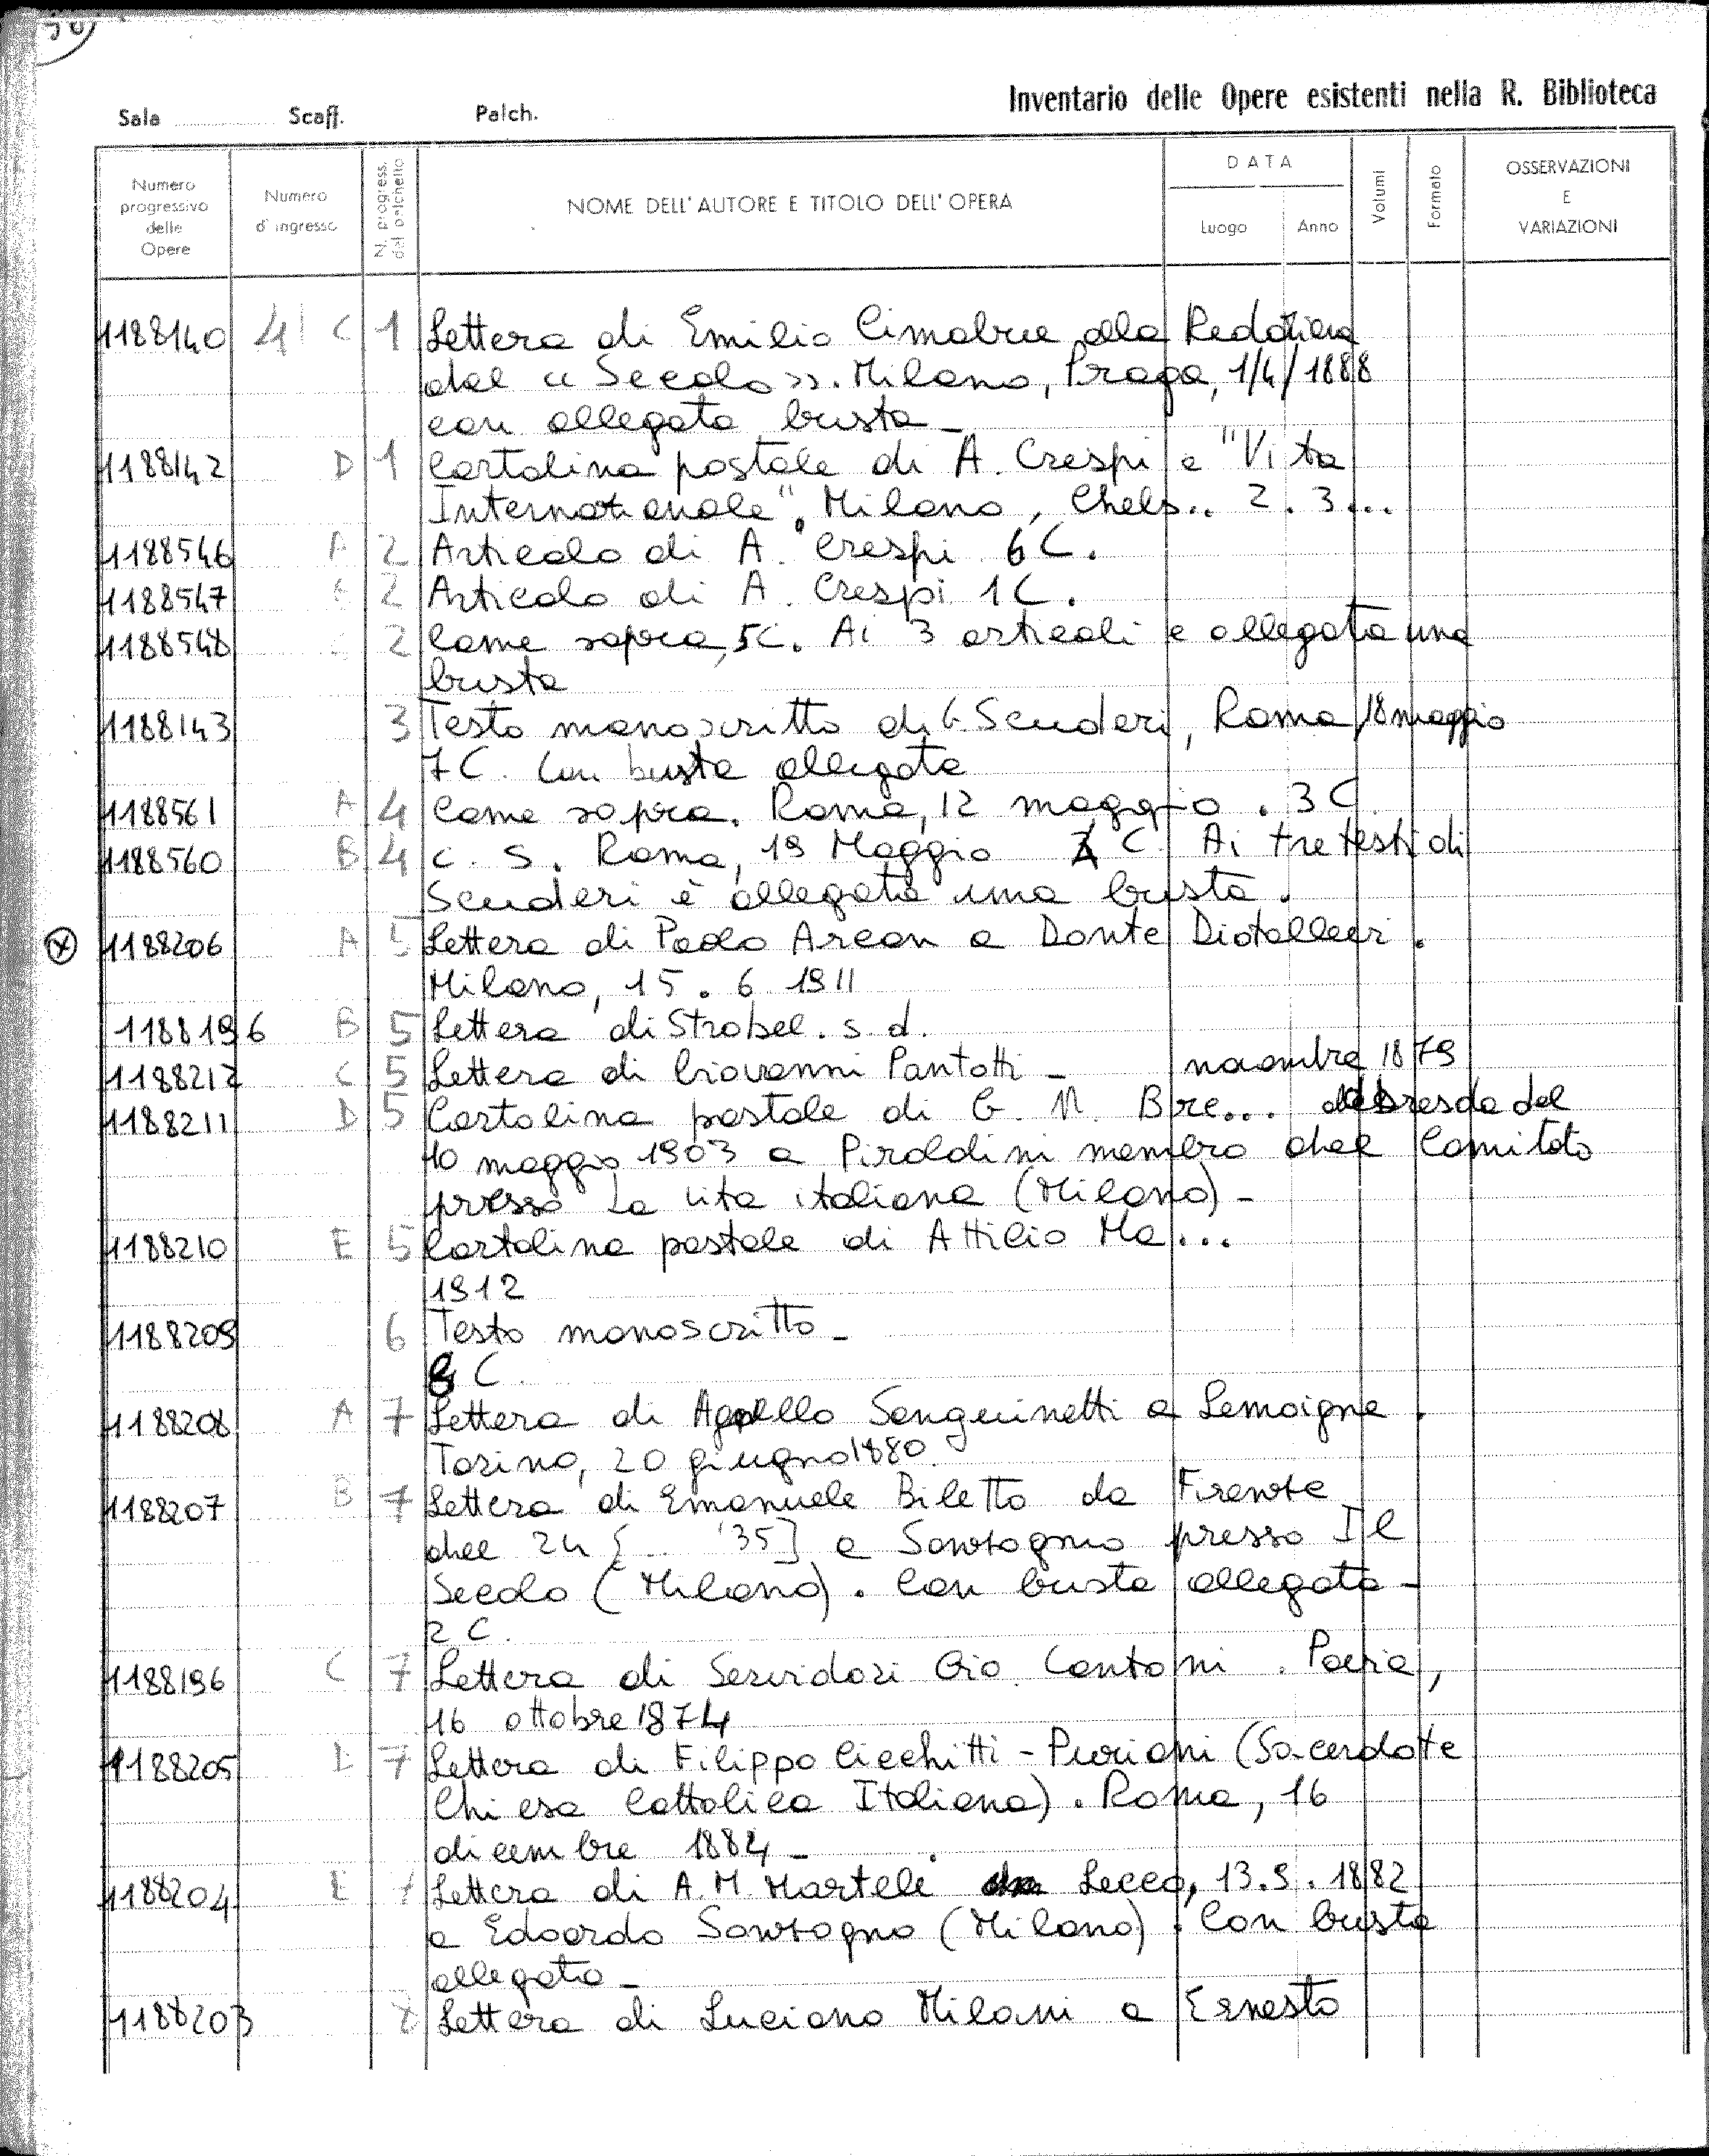 Inventario delle Opere esistenti nella R. Biblioteca
Sala Scaff. Palch.
Numero progressivo delle Opere
Numero d'ingresso
N. progress. del palchetto
NOME DELL'AUTORE E TITOLO DELL'OPERA
DATA
Luogo Anno
Volumi
Formato
OSSERVAZIONI E VARIAZIONI
1188140 4 C 1 Lettera di Emilio Cimabue alla Redazione
del « Secolo ». Milano, Praga, 1/4/1888
con allegata busta -
1188142 D 1 Cartolina postale di A. Crespi a "Vita
Internazionale". Milano, Chels.. 2.3...
1188546 A 2 Articolo di A. Crespi 6 C.
1188547 2 Articolo di A. Crespi 1 C.
1188548 2 Come sopra, 5C. Ai 3 articoli è allegata una
busta
1188143 3 Testo manoscritto di G. Scuderi, Roma, 18 maggio
7 C. Con busta allegata
1188561 A 4 Come sopra. Roma, 12 maggio. 3 C
1188560 B 4 C. S. Roma, 19 Maggio C. Ai tre testi di
Scuderi è allegata una busta.
1188206 A 5 Lettera di Paolo Arcari a Dante Diotallevi.
Milano, 15.6 1911
1188196 B 5 Lettera di Strobel. s.d.
1188212 C 5 Lettera di Giovanni Pantotti - novembre 1879
1188211 D 5 Cartolina postale di G. N. Bre... da Dresda del
10 maggio 1903 a Piroldini membro del Comitato
presso La vita italiana (Milano) -
1188210 E 5 Cartolina postale di Attilio Ma...
1912
1188209 6 Testo manoscritto -
C.
1188208 A 7 Lettera di Apollo Sanguinetti a Lemoigne.
Torino, 20 giugno 1880.
1188207 B 7 Lettera di Emanuele Biletto da Firenze
del 24 [... '35] a Sonzogno presso Il
Secolo (Milano). Con busta allegata -
2 C.
1188196 C 7 Lettera di Servidori Gio. Cantoni. Pavia,
16 ottobre 1874
1188205 D 7 Lettera di Filippo Cicchitti - Suriani (Sacerdote
Chiesa Cattolica Italiana). Roma, 16
dicembre 1884 -
1188204 E 7 Lettera di A. M. Martelli Lecco, 13.9.1882
a Edoardo Sonzogno (Milano). Con busta
allegata -
1188203 Lettera di Luciano Milani a Ernesto